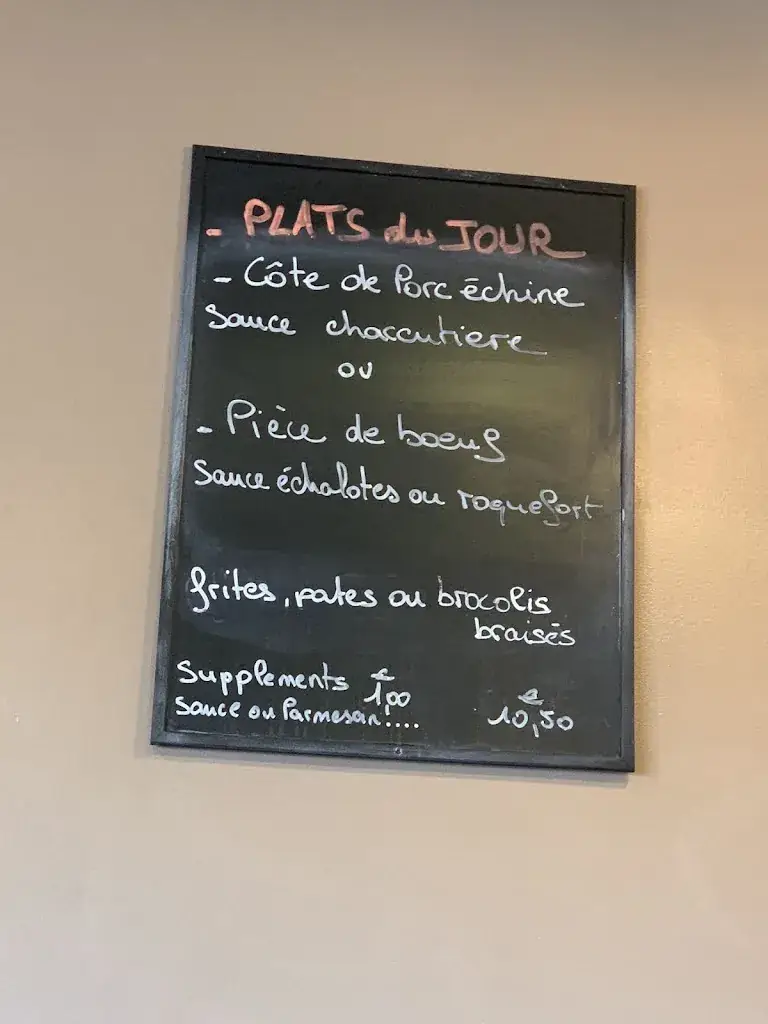 - PLATS du JOUR
- Côte de Porc échine
Sauce charcutiere
ou
- Pièce de boeuf
Sauce échalotes ou roquefort
frites, pates ou brocolis
braisés
Supplements 1,00 €
Sauce ou Parmesan!....
10,50 €